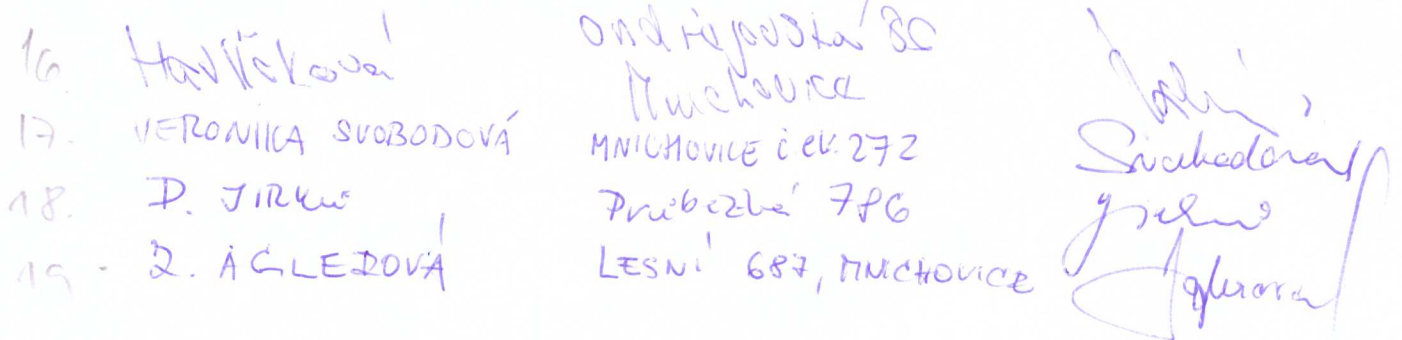 16. Havlíčková Ondřejovská 80
Mnichovice
17. VERONIKA SVOBODOVÁ MNICHOVICE č ev. 272 Svobodová
18. D. JIRKŮ Průběžná 786
19. LESNÍ 687, MNICHOVICE